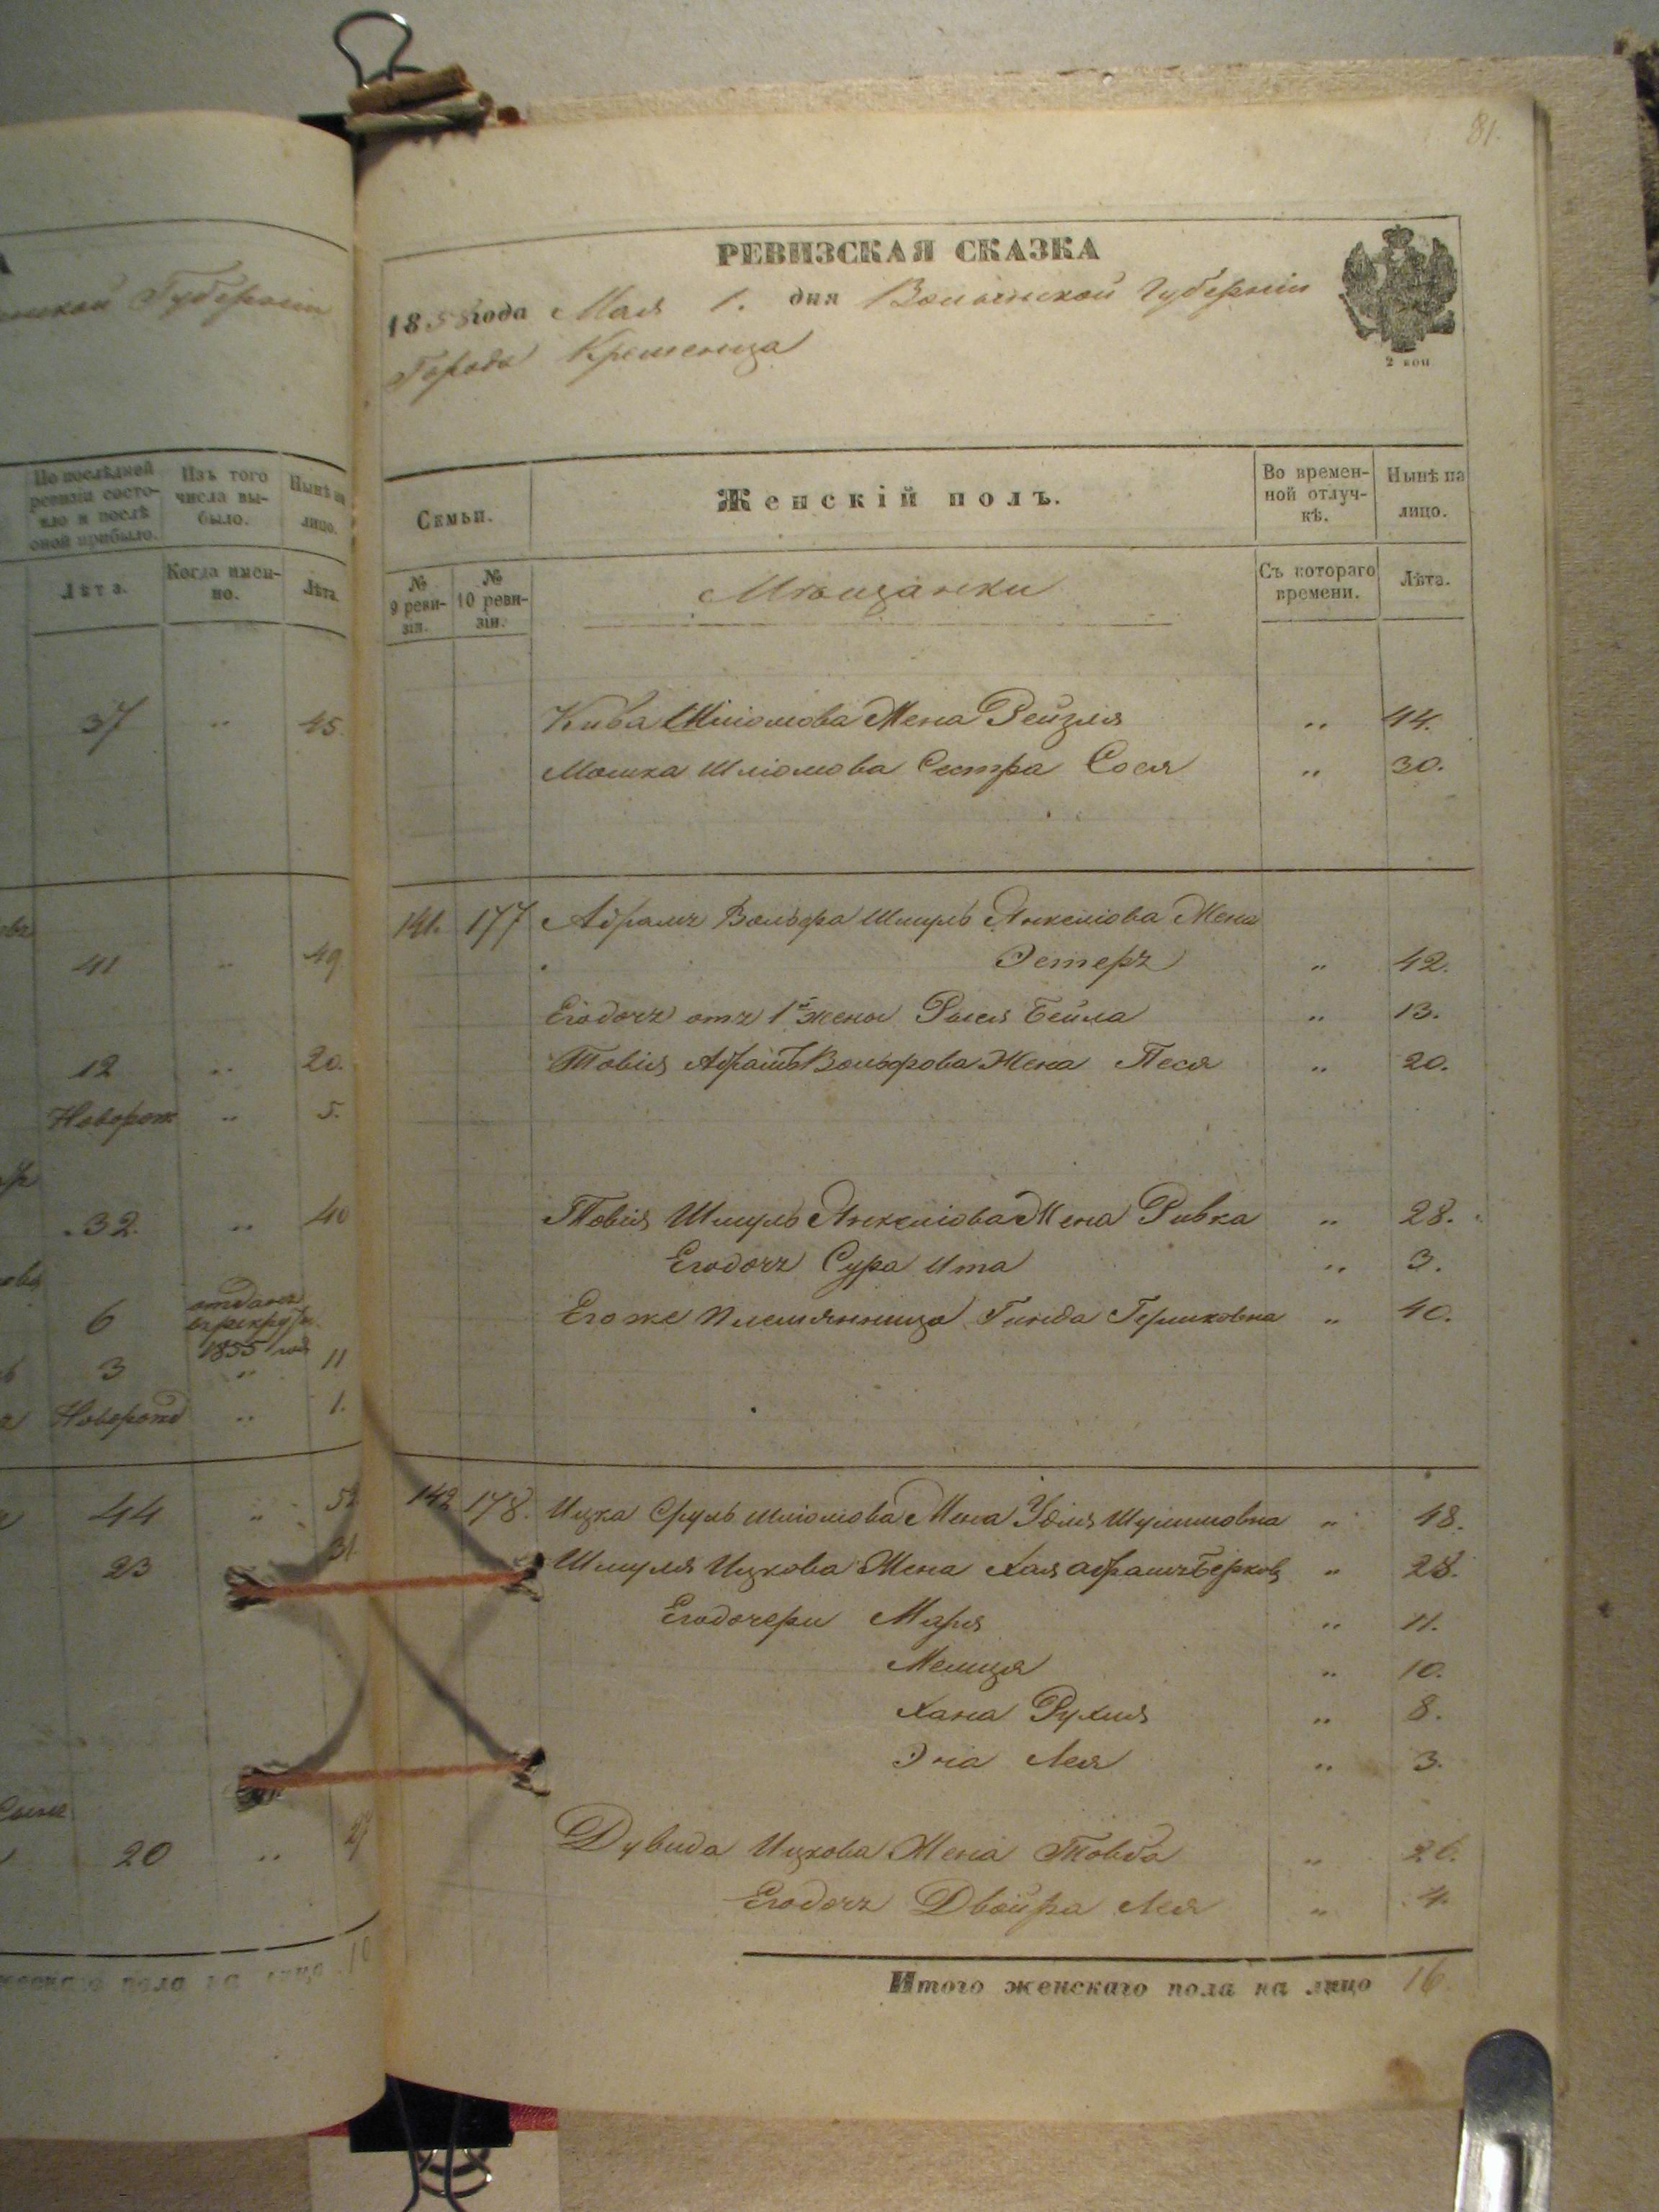 нской Губернiи
По послѣдней
ревизiи состо-
яло и послѣ
оной прибыло.
Изъ того
числа вы-
было.
Нынѣ на
лицо.
Лѣта.
Когда имен-
но.
Лѣта.
37 " 45.
41 " 49.
12 " 20.
Новорож " 5.
32. " 40
6 отданъ
въ рекруты
1855 года
3 " 11
Новорожд " 1.
44 " 52
23 31
20 "
81.
РЕВИЗСКАЯ СКАЗКА
1858 года Мая 1. дня Волынской Губернiи
Города Кременца
2 коп
Семьи.
Женскiй полъ.
Во времен-
ной отлуч-
кѣ.
Нынѣ на
лицо.
№
9 реви-
зiи.
№
10 реви-
зiи.
Мѣщанки
Съ котораго
времени.
Лѣта.
Кива Шлiомова Жена Рейзля " 44.
Мошка Шлiомова Сестра Сося " 30.
141. 177 Абрамъ Вольфа Шмуль Янкелiова Жена
Эстеръ " 42.
Егo дочь отъ 1й жены Рыся Бейла " 13.
Товiя Абрамъ Вольфова Жена Песя " 20.
Товiя Шмуль Янкелiова Жена Ривка " 28.
Его дочь Сура Ита " 3.
Его же племянница Гинда Гершковна " 40.
142 178. Ицка Сруль Шлiомова Жена Удля Шулимовна " 48.
Шмуля Ицкова Жена Хая Абрамъ Берков " 28.
Его дочери Маря " 11.
" 10.
Хана Рухля " 8.
Эна Лея " 3.
Дувида Ицкова Жена Товба " 26.
Его дочь Двойра Лея " 4.
Итого женскаго пола на лицо 16.